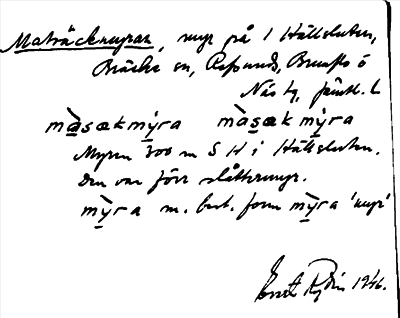 Maträckmyran, myr på 1 Hällsluten,
Bräcke sn, Refsunds, Brunflo o
Näs tg, Jämtl. l
màsœkmýra màsœkmýra
Myren 300 m S H i Hällsluten.
Den var förr slåttermyr.
mỳra m. best. form mỳra 'myr'
1946.